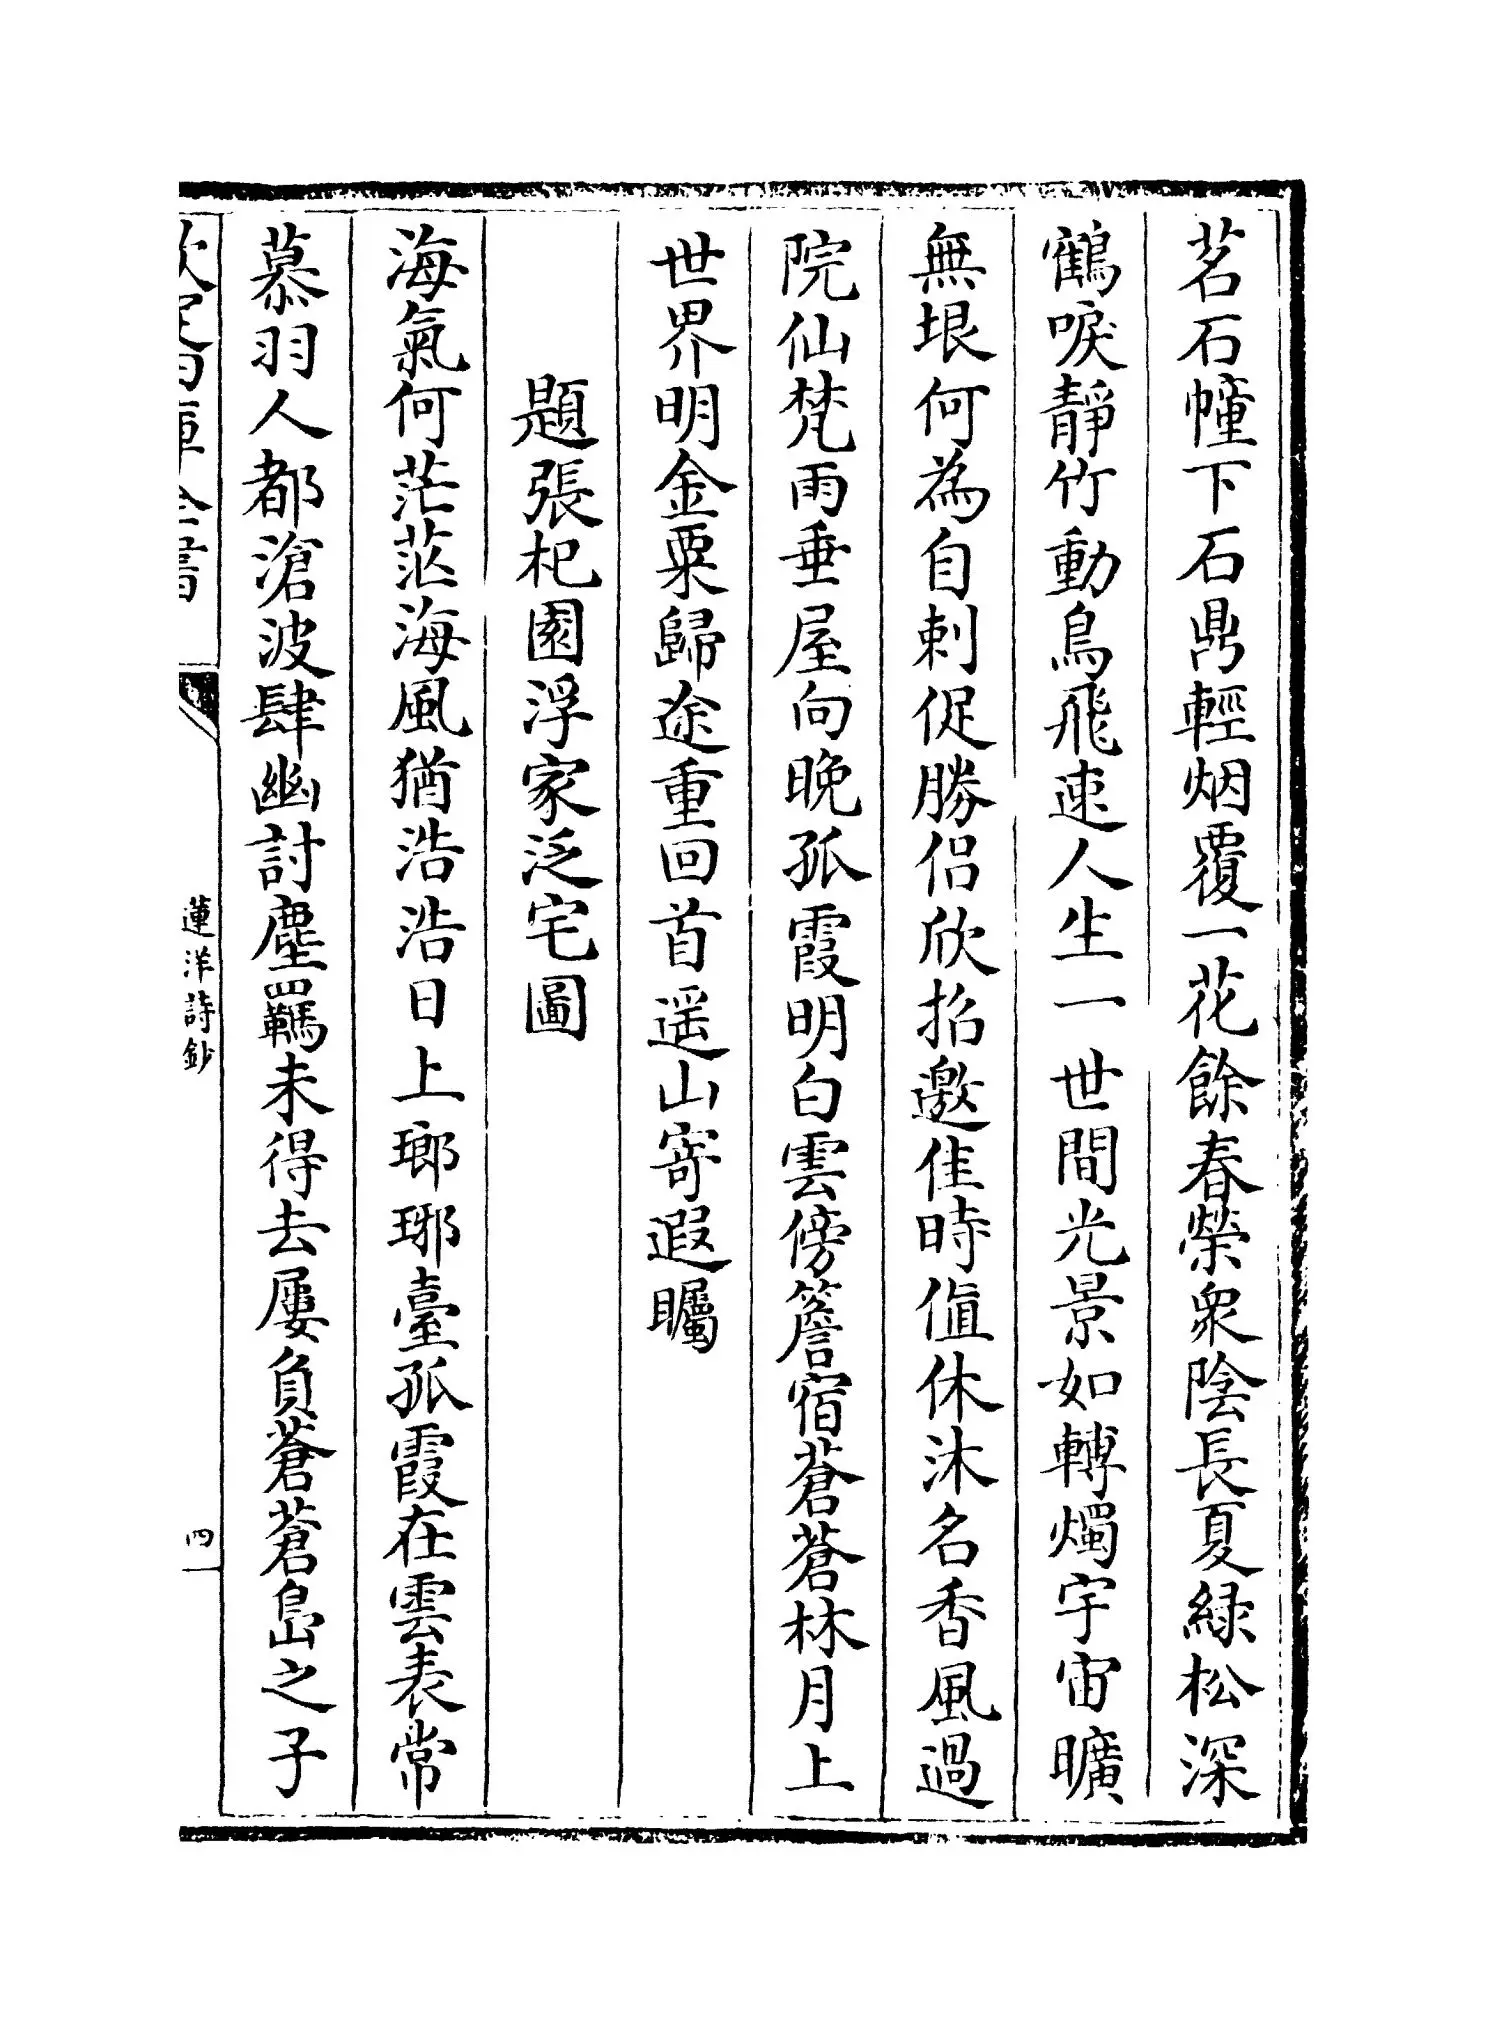 茗石幢下石鼎輕烟覆一花餘春榮衆陰長夏緑松深
鶴唳靜竹動鳥飛速人生一世間光景如轉燭宇宙曠
無垠何為自刺促勝侣欣招邀佳時値休沐名香風過
院仙梵雨垂屋向晚孤霞明白雲傍簷宿蒼蒼林月上
世界明金粟歸途重回首遥山寄遐矚
題張杞園浮家泛宅圖
海氣何茫茫海風猶浩浩日上瑯琊臺孤霞在雲表常
慕羽人都滄波肆幽討塵羈未得去屢負蒼蒼島之子
欽定四庫全書
蓮洋詩鈔
四